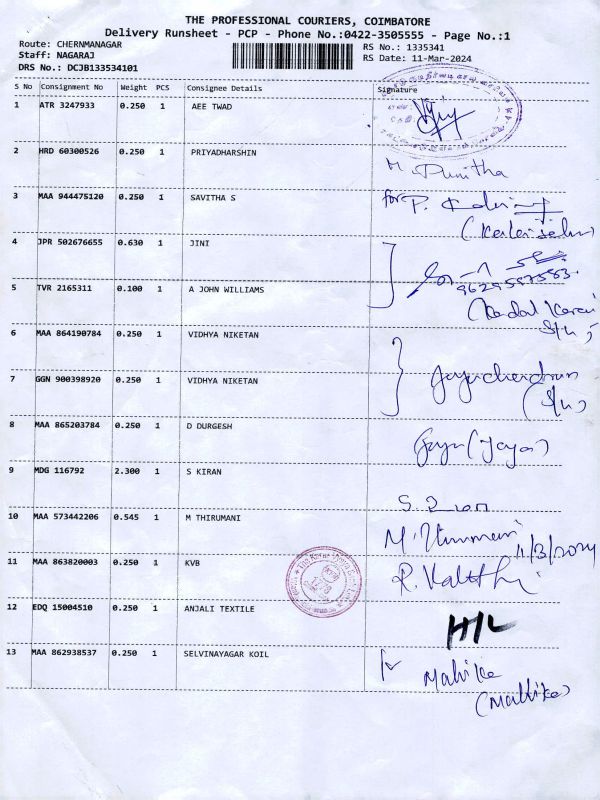 THE PROFESSIONAL COURIERS, COIMBATORE
Delivery Runsheet - PCP - Phone No.:0422-3505555 - Page No.:1
Route: CHERNMANAGAR
RS No.: 1335341
Staff: NAGARAJ
RS Date: 11-Mar-2024
DRS No.: DCJB133534101
S No Consignment No Weight PCS Consignee Details Signature
1 ATR 3247933 0.250 1 AEE TWAD
2 HRD 60300526 0.250 1 PRIYADHARSHIN
M. Punitha
3 MAA 944475120 0.250 1 SAVITHA S
for P.
4 JPR 502676655 0.630 1 JINI
5 TVR 2165311 0.100 1 A JOHN WILLIAMS
6 MAA 864190784 0.250 1 VIDHYA NIKETAN
7 GGN 900398920 0.250 1 VIDHYA NIKETAN
8 MAA 865203784 0.250 1 D DURGESH
9 MDG 116792 2.300 1 S KIRAN
10 MAA 573442206 0.545 1 M THIRUMANI
11/3/2024
11 MAA 863820003 0.250 1 KVB
12 EDQ 15004510 0.250 1 ANJALI TEXTILE
H/L
13 MAA 862938537 0.250 1 SELVINAYAGAR KOIL
(Mallika)